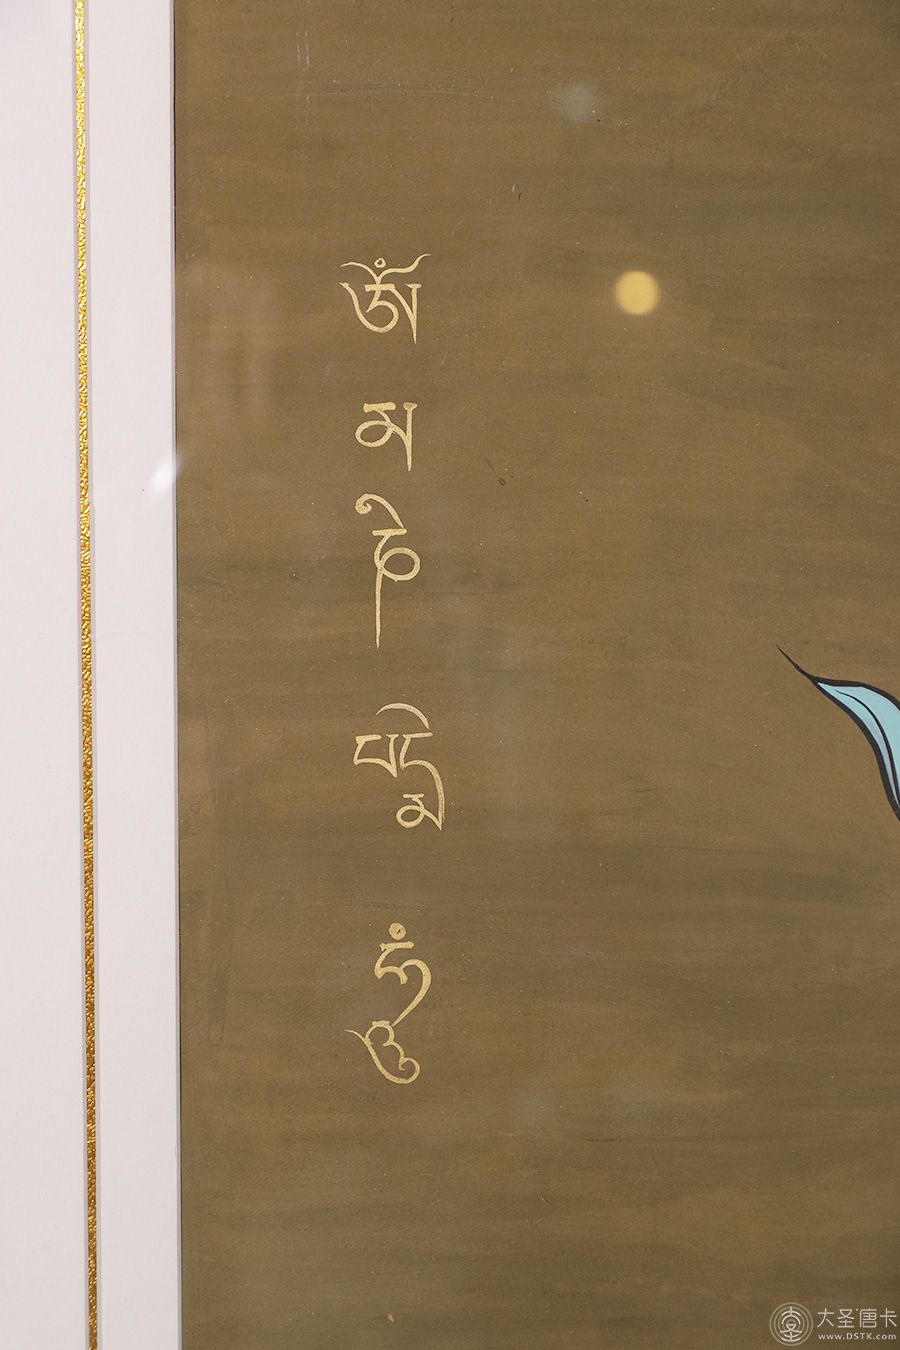 ཨོཾ
མ
ཎི
པདྨེ
ཧཱུཾ
大圣唐卡
www.DSTK.com